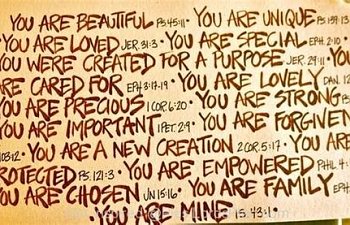 YOU ARE BEAUTIFUL PS.45:11 · YOU ARE UNIQUE PS.139:13
YOU ARE LOVED JER. 31:3 · YOU ARE SPECIAL EPH. 2:10 ·
YOU WERE CREATED FOR A PURPOSE JER. 29:11
ARE CARED FOR EPH 3:17-19 · YOU ARE LOVELY DAN. 12
YOU ARE PRECIOUS 1 COR 6:20 · YOU ARE STRONG PS
YOU ARE IMPORTANT 1 PET. 2:9 · YOU ARE FORGIVEN
103:12 · YOU ARE A NEW CREATION 2 COR. 5:17 · YOU ARE
PS. 121:3 · YOU ARE EMPOWERED PHIL. 4:
YOU ARE CHOSEN JN 15:16 · YOU ARE FAMILY EPH
YOU ARE MINE IS. 43:1 ·